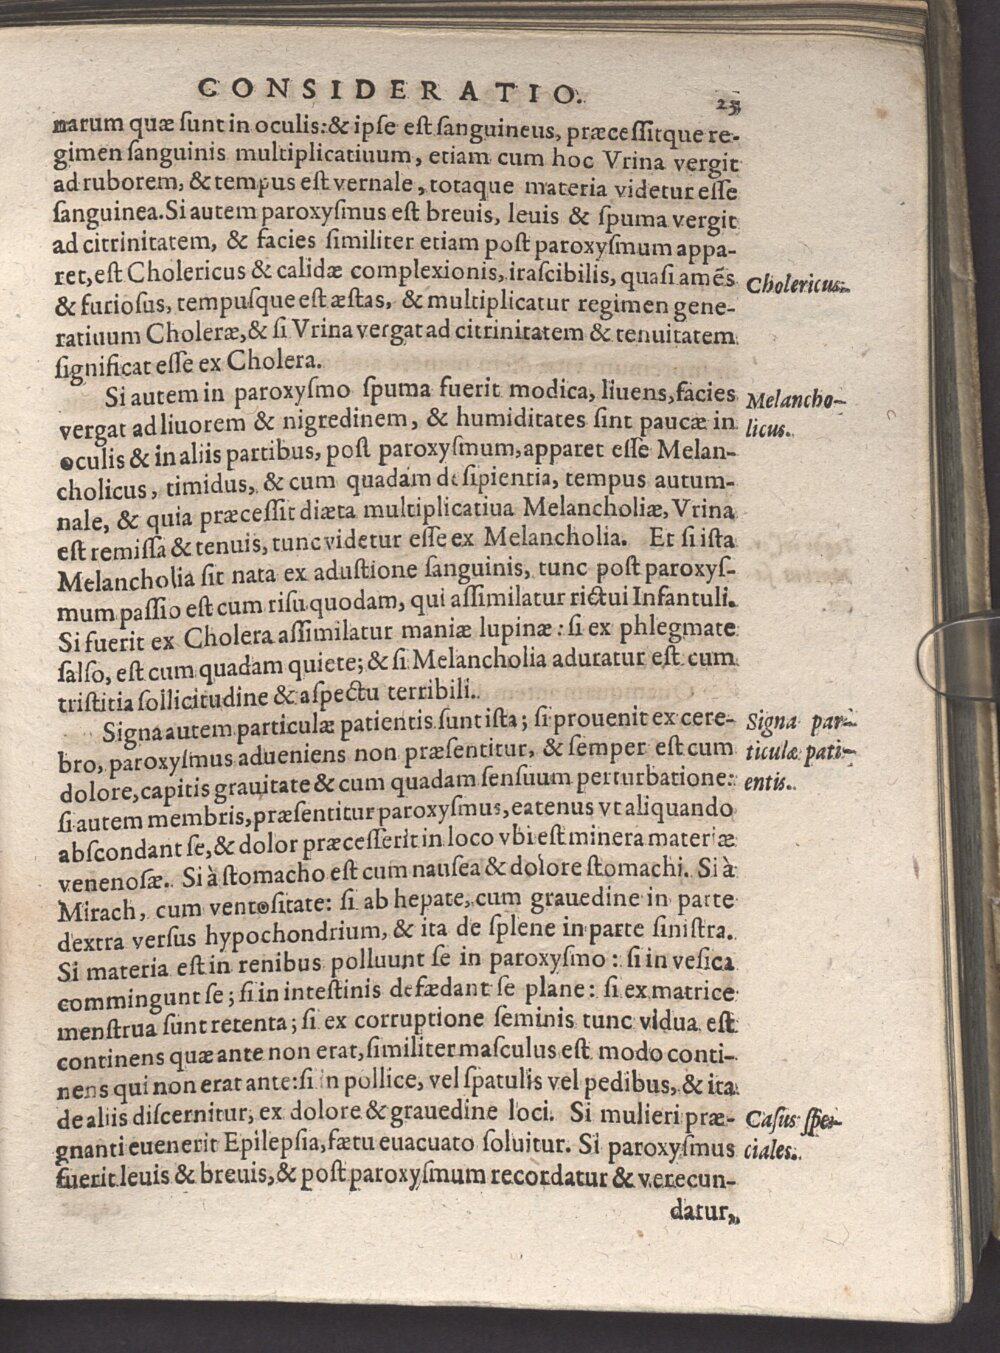 CONSIDERATIO. 25
narum quæ ſunt in oculis:& ipſe eſt ſanguineus, præceſſitque re-
gimen ſanguinis multiplicatiuum, etiam cum hoc Vrina vergit
ad ruborem, & tempus eſt vernale, totaque materia videtur eſſe
ſanguinea. Si autem paroxyſmus eſt breuis, leuis & ſpuma vergit
ad citrinitatem, & facies ſimiliter etiam poſt paroxyſmum appa-
ret, eſt Cholericus & calidæ complexionis, iraſcibilis, quaſi amẽs
Cholericus.
& furioſus, tempuſque eſt æſtas, & multiplicatur regimen gene-
ratiuum Choleræ, & ſi Vrina vergat ad citrinitatem & tenuitatem
ſignificat eſſe ex Cholera.
Si autem in paroxyſmo ſpuma fuerit modica, liuens, facies
Melancho-
vergat ad liuorem & nigredinem, & humiditates ſint paucæ in
licus.
oculis & in aliis partibus, poſt paroxyſmum, apparet eſſe Melan-
cholicus, timidus, & cum quadam deſipientia, tempus autum-
nale, & quia præceſſit diæta multiplicatiua Melancholiæ, Vrina
eſt remiſſa & tenuis, tunc videtur eſſe ex Melancholia. Et ſi iſta
Melancholia ſit nata ex aduſtione ſanguinis, tunc poſt paroxyſ-
mum paſſio eſt cum riſu quodam, qui aſſimilatur rictui Infantuli.
Si fuerit ex Cholera aſſimilatur maniæ lupinæ: ſi ex phlegmate
ſalſo, eſt cum quadam quiete; & ſi Melancholia aduratur eſt cum
triſtitia ſollicitudine & aſpectu terribili.
Signa autem particulæ patientis ſunt iſta; ſi prouenit ex cere-
Signa par-
bro, paroxyſmus adueniens non præſentitur, & ſemper eſt cum
ticulæ pati-
dolore, capitis grauitate & cum quadam ſenſuum perturbatione:
entis.
ſi autem membris, præſentitur paroxyſmus, eatenus vt aliquando
abſcondant ſe, & dolor præceſſerit in loco vbi eſt minera materiæ
venenoſæ. Si à ſtomacho eſt cum nauſea & dolore ſtomachi. Si à
Mirach, cum ventoſitate: ſi ab hepate, cum grauedine in parte
dextra verſus hypochondrium, & ita de ſplene in parte ſiniſtra.
Si materia eſt in renibus polluunt ſe in paroxyſmo: ſi in veſica
commingunt ſe; ſi in inteſtinis defædant ſe plane: ſi ex matrice
menſtrua ſunt retenta; ſi ex corruptione ſeminis tunc vidua eſt
continens quæ ante non erat, ſimiliter maſculus eſt modo conti-
nens qui non erat ante: ſi in pollice, vel ſpatulis vel pedibus, & ita
de aliis diſcernitur, ex dolore & grauedine loci. Si mulieri præ-
Caſus ſpe-
gnanti euenerit Epilepſia, fætu euacuato ſoluitur. Si paroxyſmus
ciales.
fuerit leuis & breuis, & poſt paroxyſmum recordatur & verecun-
datur,